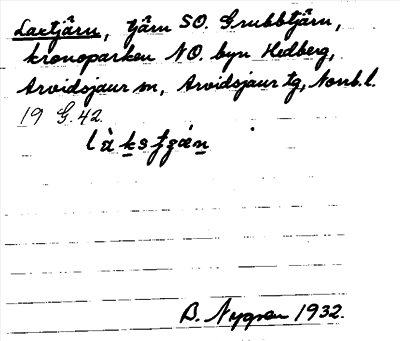 Laxtjärn, tjärn SO. Grubbtjärn,
kronoparken NO. byn Hedberg,
Arvidsjaur sn, Arvidsjaur tg, Nonb. l.
19 G. 42.
B. Nygren 1932.